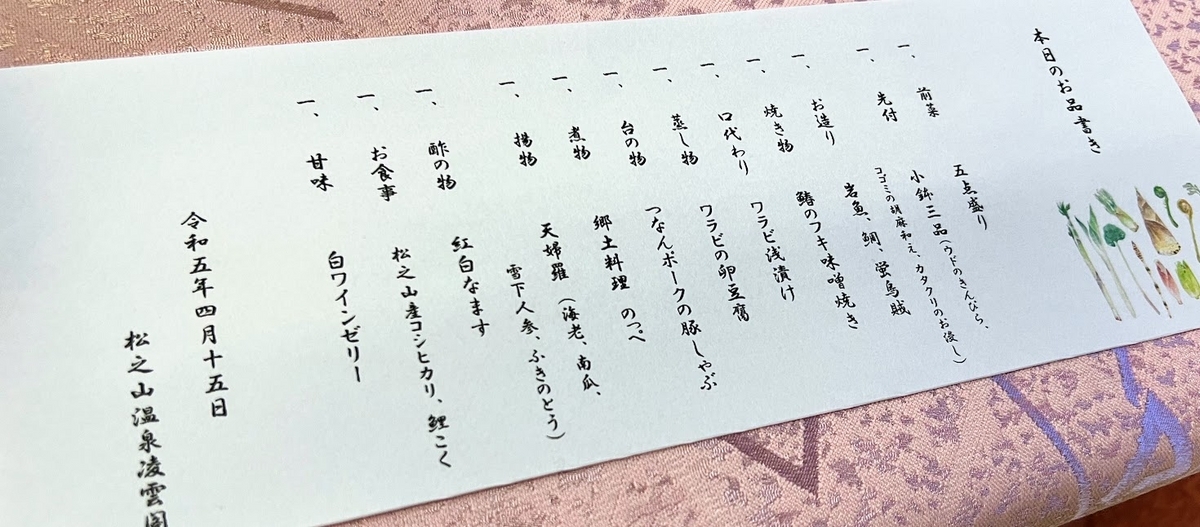 本日のお品書き
一、前菜 五点盛り
一、先付 小鉢三品（ウドのきんぴら、
コゴミの胡麻和え、カタクリのお浸し）
一、お造り 岩魚、鯛、蛍烏賊
一、焼き物 鰆のフキ味噌焼き
一、口代わり ワラビ浅漬け
一、蒸し物 ワラビの卵豆腐
一、台の物 つなんポークの豚しゃぶ
一、煮物 郷土料理 のっぺ
一、揚物 天婦羅（海老、南瓜、
雪下人参、ふきのとう）
一、酢の物 紅白なます
一、お食事 松之山産コシヒカリ、鯉こく
一、甘味 白ワインゼリー
令和五年四月十五日
松之山温泉凌雲閣